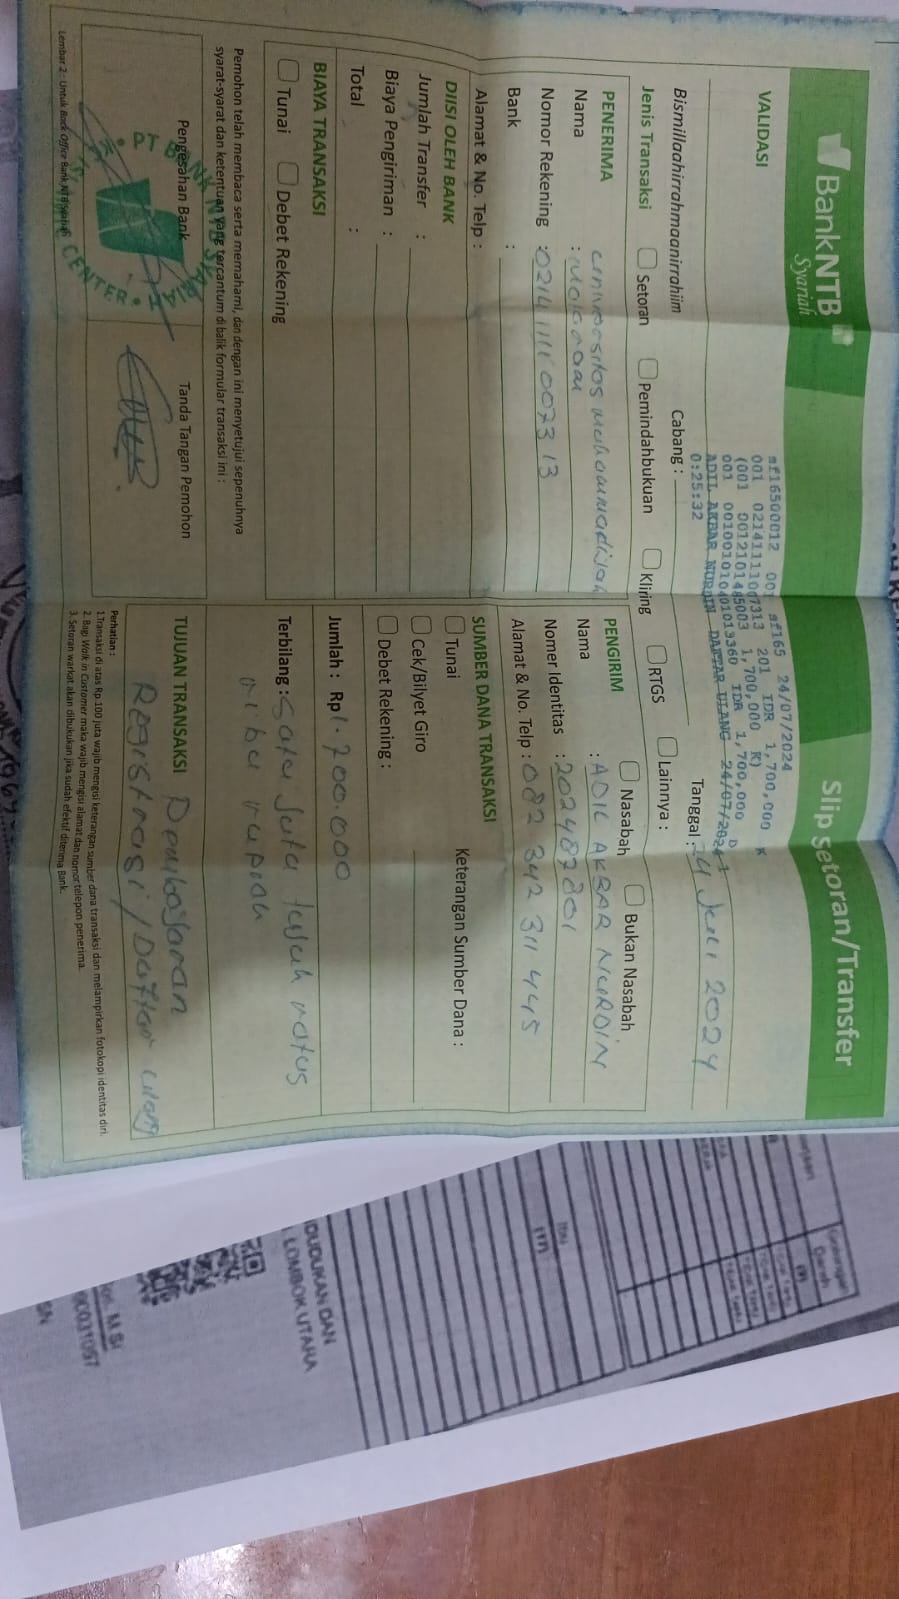 BankNTB
Syariah
Slip Setoran/Transfer
VALIDASI
sf16500012 001 sf165 24/07/2024
001 02141111007313 201 IDR 1,700,000 K
(001 0012101485003 1,700,000 K)
001 001001010401019360 IDR 1,700,000 D
ADIL AKBAR NURDIN DAFTAR ULANG 24/07/2024
0:25:32
Bismillaahirrahmaanirrahiim
Cabang :
Tanggal : 24 Juli 2024
Jenis Transaksi
Setoran
Pemindahbukuan
Kliring
RTGS
Lainnya :
PENERIMA
Nama : Universitas Muhammadiyah
Mataram
Nomor Rekening : 0214111100 73 13
Bank :
Alamat & No. Telp :
PENGIRIM
Nasabah
Bukan Nasabah
Nama : ADIL AKBAR NURDIN
Nomer Identitas : 2024878201
Alamat & No. Telp : 082 342 311 445
DIISI OLEH BANK
Jumlah Transfer :
Biaya Pengiriman :
Total :
SUMBER DANA TRANSAKSI
Tunai
Keterangan Sumber Dana :
Cek/Bilyet Giro
Debet Rekening :
BIAYA TRANSAKSI
Tunai
Debet Rekening
Jumlah : Rp 1.700.000
Terbilang : Satu Juta tujuh ratus
ribu rupiah
Pemohon telah membaca serta memahami, dan dengan ini menyetujui sepenuhnya
syarat-syarat dan ketentuan yang tercantum di balik formular transaksi ini :
Pengesahan Bank
Tanda Tangan Pemohon
PT BANK NTB SYARIAH
CENTER
TUJUAN TRANSAKSI Pembayaran
Registrasi / Daftar ulang
Perhatian :
1.Transaksi di atas Rp 100 juta wajib mengisi keterangan sumber dana transaksi dan melampirkan fotokopi identitas diri.
2. Bagi Walk in Customer maka wajib mengisi alamat dan nomor telepon penerima.
3. Setoran warkat akan dibukukan jika sudah efektif diterima Bank.
Lembar 2 : Untuk Back Office Bank NTB Syariah
DUDUKAN DAN
LOMBOK UTARA
M.Si